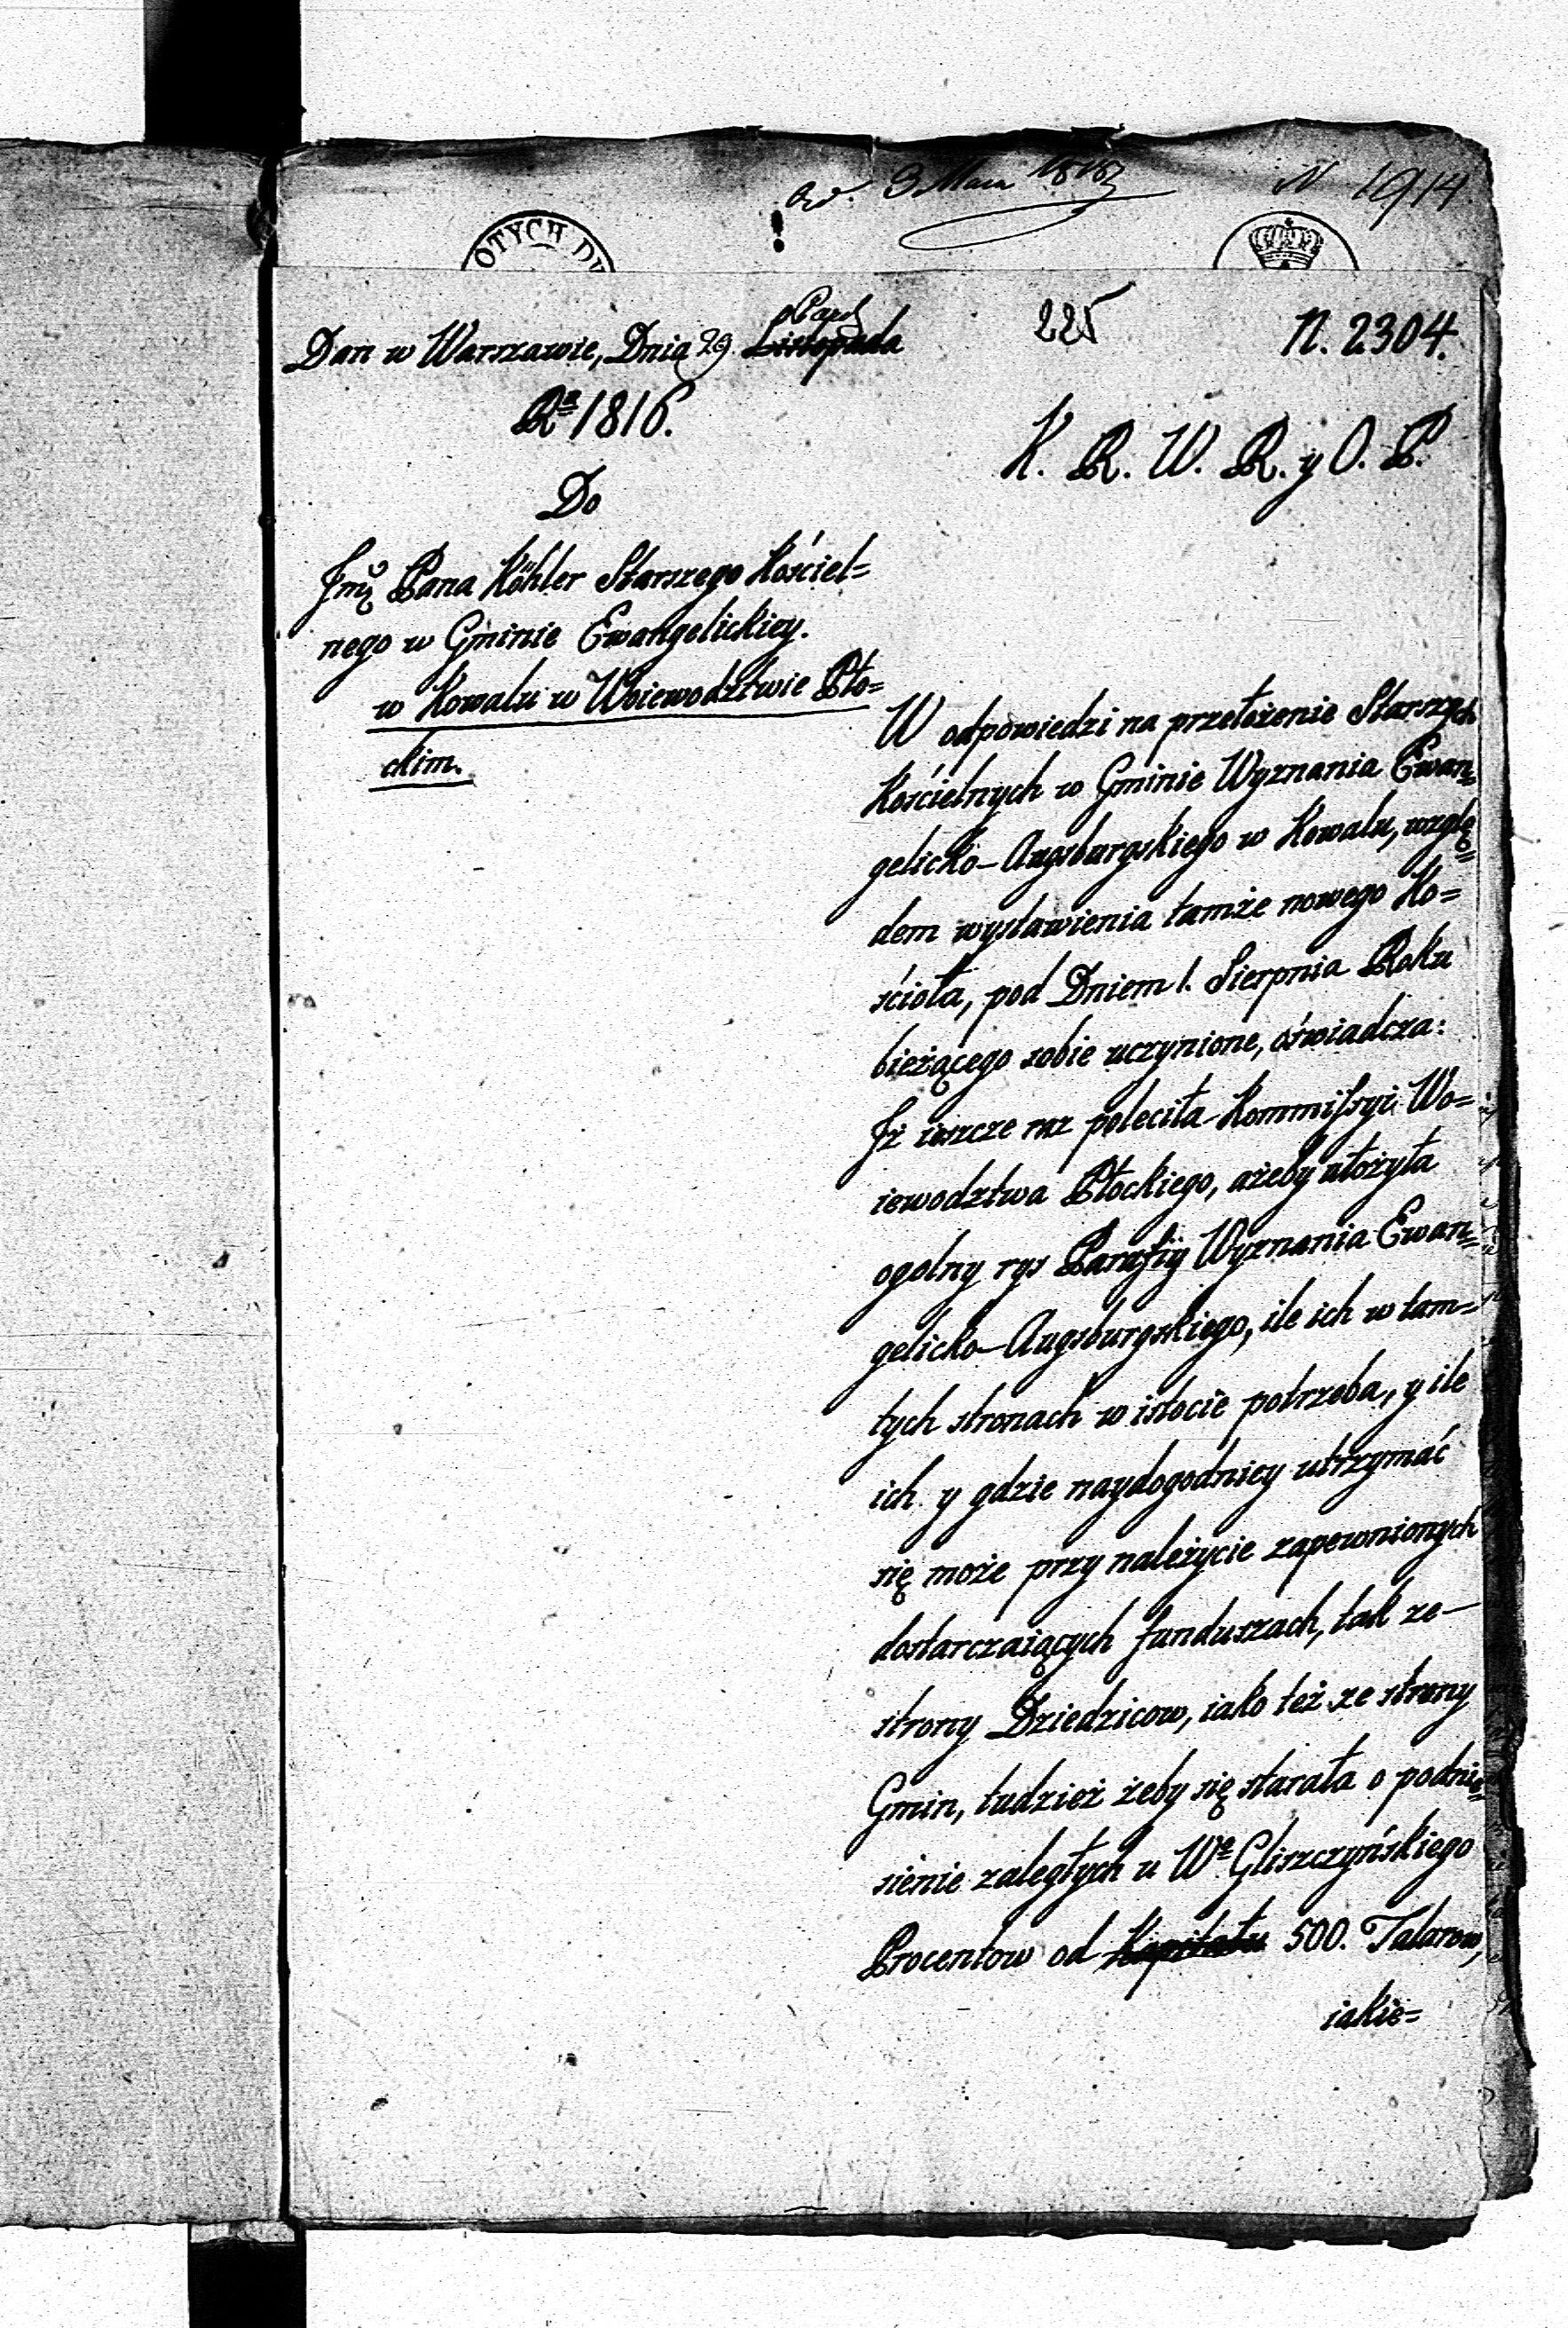 3 Maia 1818
N 1914
OTYCH
225
N. 2304.
Dan w Warszawie, Dnia 29. Listopada
Paźd
Ra 1816.
K. R. W. R. y O. P.
Do
Jmć Pana Köhler Starszego Kościel=
nego w Gminie Ewangelickiey.
w Kowalu w Woiewodztwie Pło=
ckim.
W odpowiedzi na przełożenie Starszych
Kościelnych w Gminie Wyznania Ewan=
gelicko-Augsburgskiego w Kowalu, wzglę=
dem wystawienia tamże nowego Ko=
ścioła, pod Dniem 1. Sierpnia Roku
bieżącego sobie uczynione, oświadcza:
Iż ieszcze raz poleciła Kommissyi Wo=
iewodztwa Płockiego, ażeby ułożyła
ogolny rys Parafiy Wyznania Ewan=
gelicko-Augsburgskiego, ile ich w tam=
tych stronach w istocie potrzeba, y ile
ich y gdzie naydogodniey utrzymać
się może przy należycie zapewnionych
dostarczaiących funduszach, tak ze-
strony Dziedzicow, iako też ze strony
Gmin, tudzież żeby się starała o podnie=
sienie zaległych u We Gliszczyńskiego
Procentow od Kapitału 500. Talarow,
iakie=